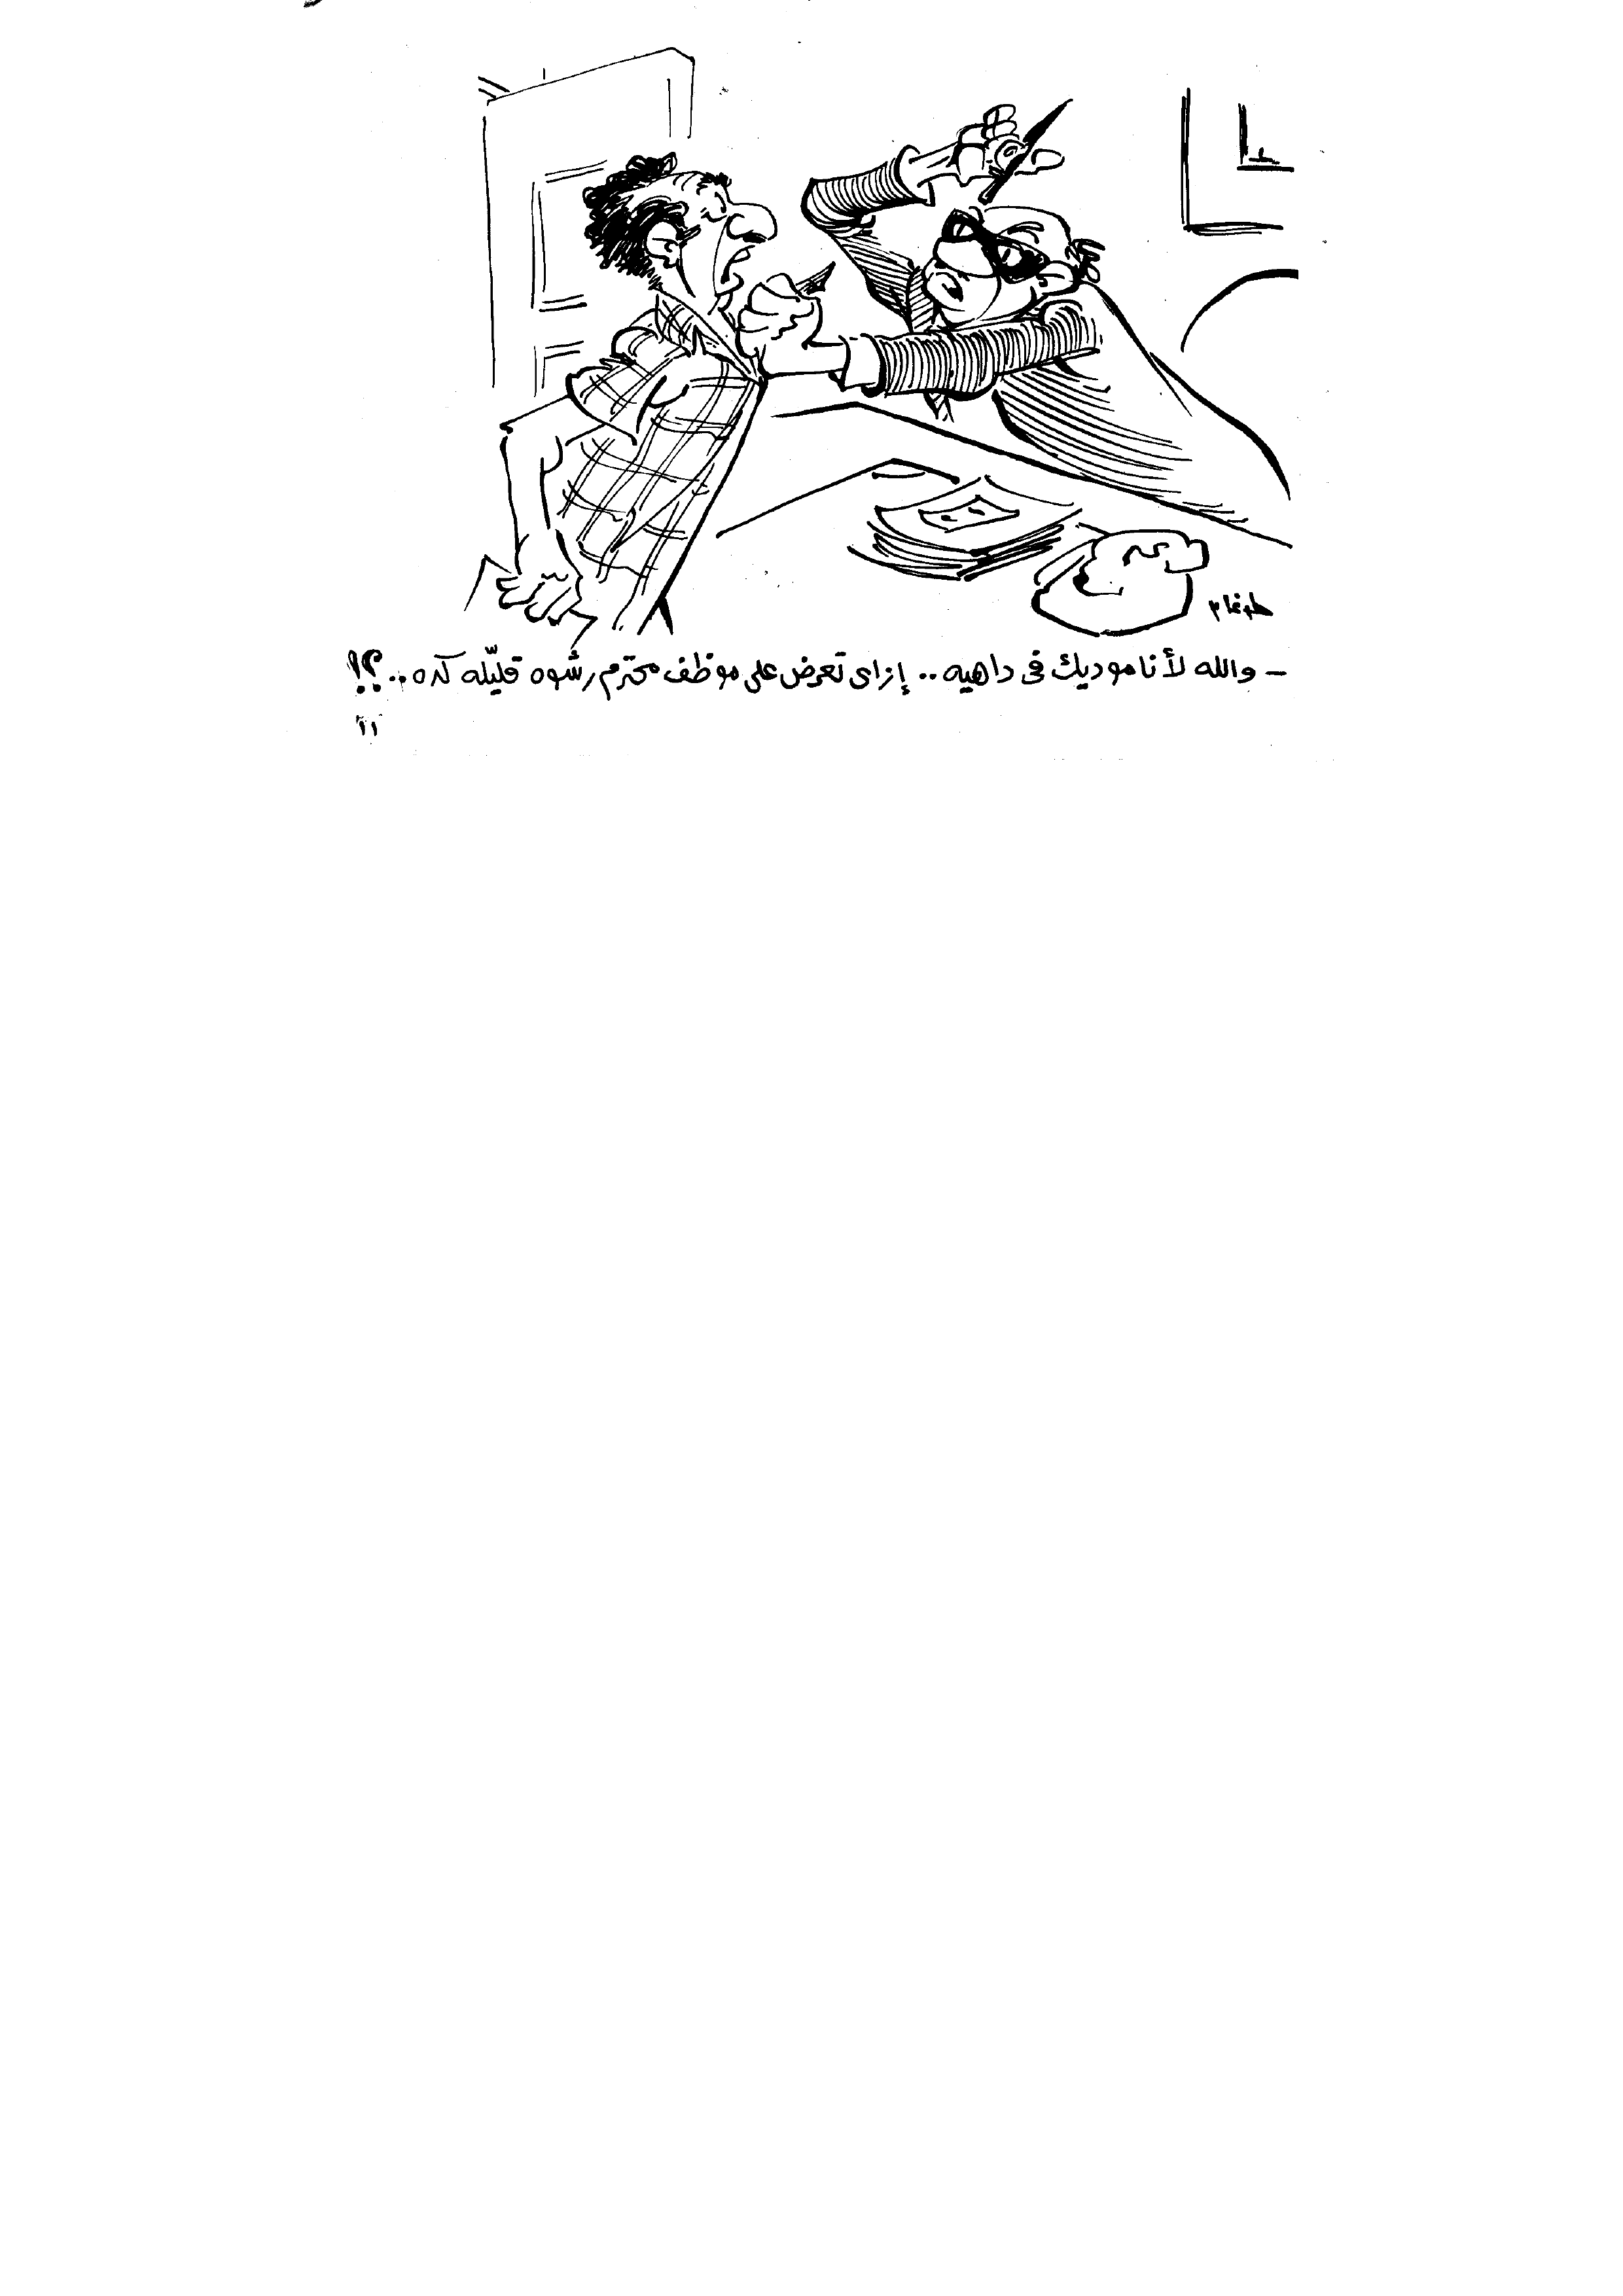 طوغان
– والله لأنا موديك فى داهيه .. إزاى تعرض على موظف محترم رشوه قليّله كده .. ؟!